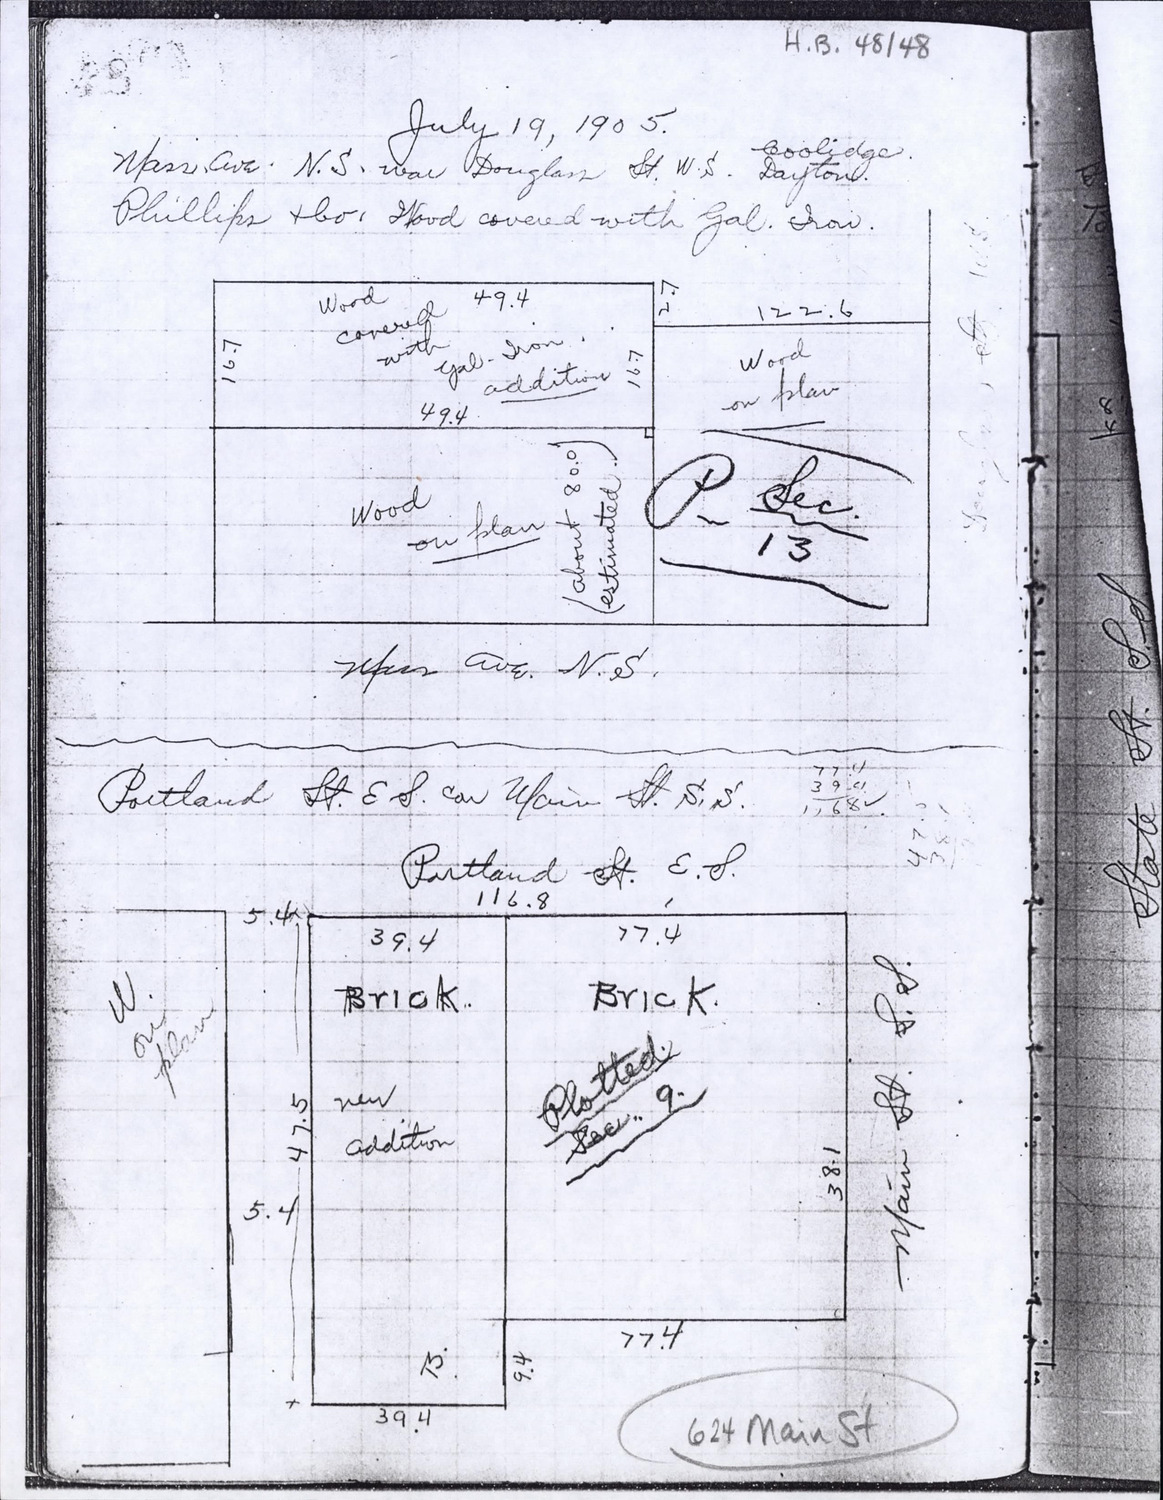 H.B. 48/48
July 19, 1905.
Mass. Ave. N.S. near Douglass St. W.S. Coolidge.
Dayton.
Phillips + Co. Wood covered with Gal. Iron.
Wood
covered
with
Gal. Iron
addition
49.4
16.7
16.7
49.4
2.7
122.6
Wood
on plan
Wood
on plan
(about 80.0)
(estimated.)
P. Sec.
13
Mass Ave. N.S.
Portland St. E.S. cor Main St. S.S.
77.4
39.4
1168 ✓
47.
38.1
Portland St. E.S.
116.8
5.4
39.4
77.4
W.
on
plan
Brick.
Brick.
new
addition
Plotted
Sec. 9.
47.5
5.4
38.1
Main St. S.S.
B.
9.4
77.4
39.4
624 Main St
State St. S.S